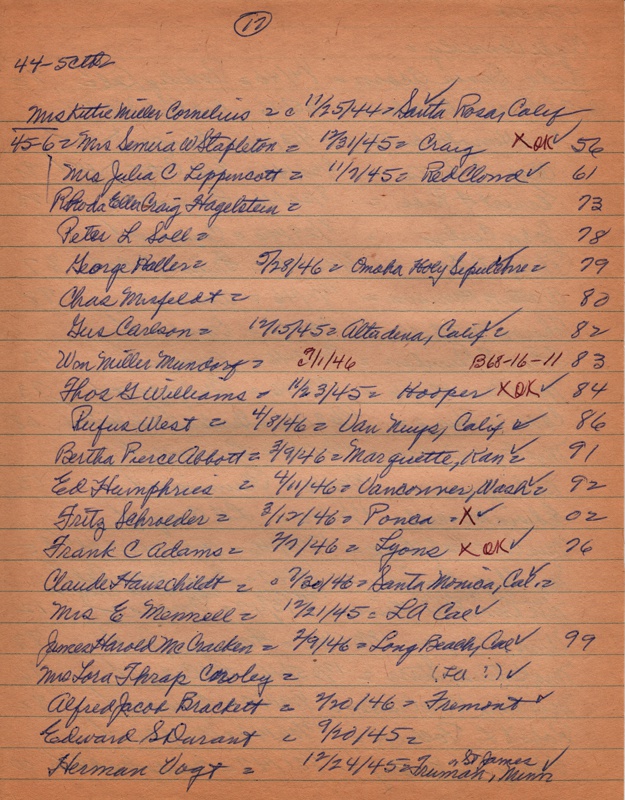 17
44-5
Mrs Kittie Miller Cornelius = c 11/25/44 = Santa Rosa, Calif ✓
45-6 = Mrs Semira W Stapleton = 12/31/45 = Craig X OK ✓ 56
Mrs Julia C Lippincott = 11/2/45 = Red Cloud ✓ 61
Rhoda Eller Craig Hagelstein = 73
Peter L Soll = 78
George Haller = 5/28/46 = Omaha Holy Sepulchre = 79
Chas Misfeldt = 80
Gus Carlson = 12/15/45 = Altadena, Calif ✓ = 82
Wm Miller Mundorf = 3/1/46 B68-16-11 83
Thos G Williams = 11/23/45 = Hooper X OK ✓ 84
Rufus West = 4/8/46 = Van Nuys, Calif ✓ 86
Bertha Pierce Abbott = 3/9/46 = Marquette, Kan ✓ = 91
Ed Humphries = 4/11/46 = Vancouver, Wash ✓ = 92
Fritz Schroeder = 3/12/46 = Ponca = X ✓ 02
Frank C Adams = 2/7/46 = Lyons X OK ✓ 76
Claude Hauschildt = c 7/30/46 = Santa Monica, Cal. ✓ =
Mrs E Mennell = 12/21/45 = LA Cal ✓
James Harold McCracken = 2/9/46 = Long Beach, Cal ✓ 99
Mrs Lora Thrap = (La ?) ✓
Alfred Jacob Brackett = 2/20/46 = Fremont ✓
Edward S Durant = 9/20/45 =
Herman Vogt = 12/24/45 = Truman, St James Minn ✓